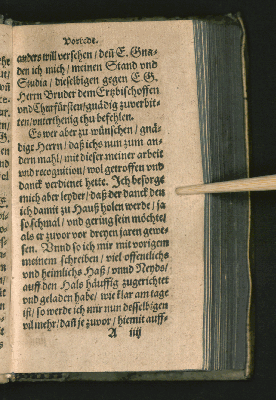 Vorrede.
anders will versehen / deñ E. Gna-
den ich mich / meinen Stand vnd
Studia / dieselbigen gegen E. G.
Herrn Bruder dem Ertzbischoffen
vnd Churfürsten / gnädig zuverbit-
ten / vnterthenig thu befehlen.
Es wer aber zu wünschen / gnä-
dige Herrn / daß ichs nun zum an-
dern mahl / mit dieser meiner arbeit
vnd recognition / wol getroffen vnd
danck verdienet hette. Ich besorge
mich aber leyder / daß der danck den
ich damit zu Hauß holen werde / ja
so schmal / vnd gering sein möchte /
als er zuvor vor dreyen jaren gewe-
sen. Vnnd so ich mir mit vorigem
meinem schreiben / viel offentlichs
vnd heimlichs Haß / vnnd Neyds /
auff den Hals häuffig zugerichtet
vnd geladen habe / wie klar am tage
ist / so werde ich mir nun desselbigen
vil mehr / dañ je zuvor / hiemit auff-
A iiij